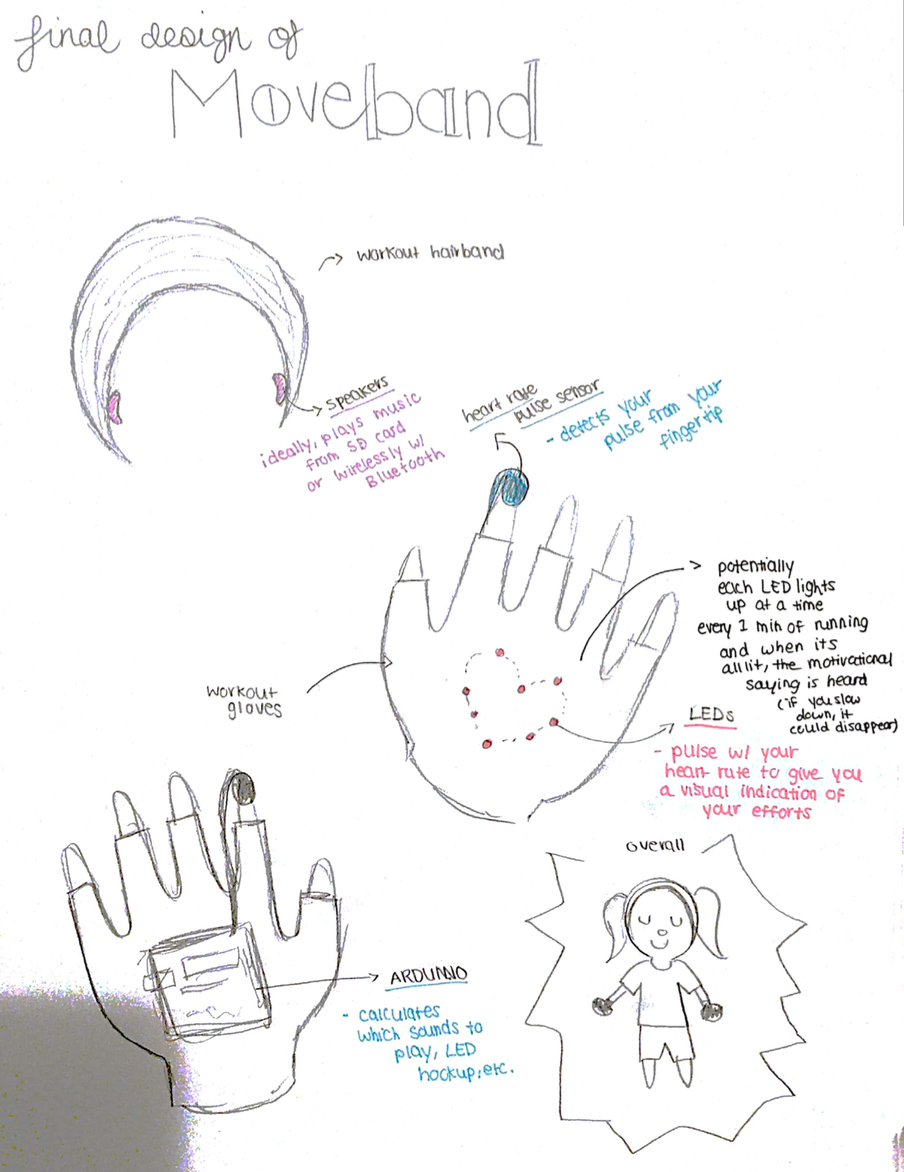 final design of
Moveband
workout hairband
speakers
ideally, plays music
from SD card
or wirelessly w/
Bluetooth
heart rate
pulse sensor
- detects your
pulse from your
fingertip
potentially
each LED lights
up at a time
every 1 min of running
and when its
all lit, the motivational
saying is heard
(if you slow
down, it
could disappear)
workout
gloves
LEDs
- pulse w/ your
heart rate to give you
a visual indication of
your efforts
ARDUINO
- calculates
which sounds to
play, LED
hookup, etc.
overall